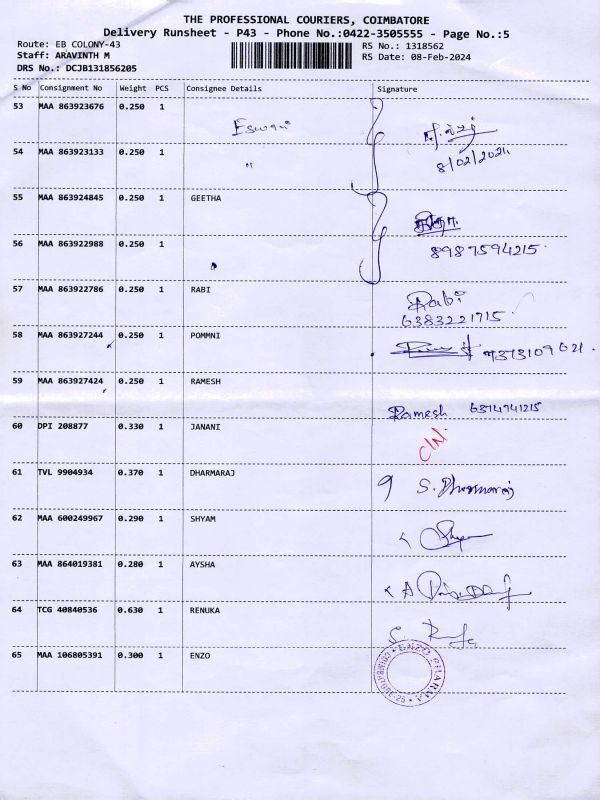 THE PROFESSIONAL COURIERS, COIMBATORE
Delivery Runsheet - P43 - Phone No.:0422-3505555 - Page No.:5
Route: EB COLONY-43 RS No.: 1318562
Staff: ARAVINTH M RS Date: 08-Feb-2024
DRS No.: DCJB131856205
S No Consignment No Weight PCS Consignee Details Signature
53 MAA 863923676 0.250 1
Eswari
54 MAA 863923133 0.250 1
8/02/2024
55 MAA 863924845 0.250 1 GEETHA
56 MAA 863922988 0.250 1
8987594215
57 MAA 863922786 0.250 1 RABI
Rabi
6383221715
58 MAA 863927244 0.250 1 POMMNI
9373109621
59 MAA 863927424 0.250 1 RAMESH
Ramesh 6374941215
60 DPI 208877 0.330 1 JANANI
61 TVL 9904934 0.370 1 DHARMARAJ
S. Dharmaraj
62 MAA 600249967 0.290 1 SHYAM
63 MAA 864019381 0.280 1 AYSHA
64 TCG 40840536 0.630 1 RENUKA
65 MAA 106805391 0.300 1 ENZO
ENZO PHARMA
COIMBATORE-25